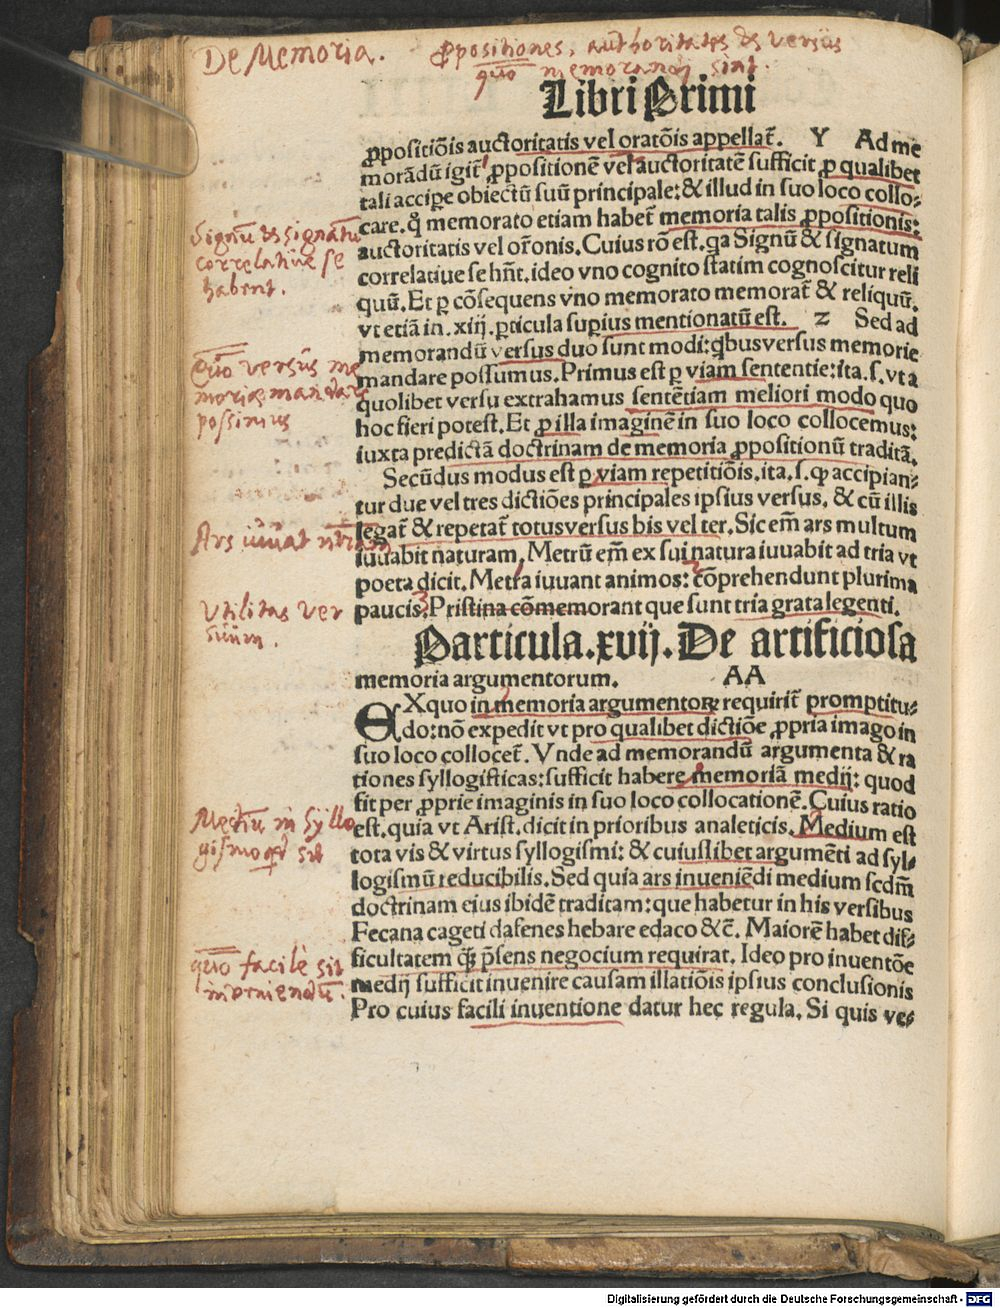 De Memoria.
Ꝓpositiones, authoritates et versus
quō memorandi sint.
Libri Primi
ꝓpositiōis auctoritatis vel oratōis appellat̄. Y Ad me
morādū igit̄ ꝓpositionē vel auctoritatē sufficit ꝑ qualibet
tali accipe obiectū suū principale: & illud in suo loco collo-
care. q̊ memorato etiam habet̄ memoria talis ꝓpositionis:
auctoritatis vel or̄onis. Cuius rō est. qa Signū & signatum
correlatiue se hn̄t. ideo vno cognito statim cognoscitur reli
quū. Et ꝑ cōsequens vno memorato memorat̄ & reliquū.
vt etiā in. xiij. ꝑticula supius mentionatū est. Z Sed ad
memorandū versus duo sunt modi: qbus versus memorie
mandare possumus. Primus est ꝑ viam sententie: ita. s. vt a
quolibet versu extrahamus sentētiam meliori modo quo
hoc fieri potest. Et ꝑ illa imaginē in suo loco collocemus:
iuxta predictā doctrinam de memoria ꝓpositionū traditā.
Secūdus modus est ꝑ viam repetitiōis. ita. s. ꝙ accipian-
tur due vel tres dictiōes principales ipsius versus. & cū illis
legat̄ & repetat̄ totus versus bis vel ter. Sic em̄ ars multum
iuuabit naturam. Metrū em̄ ex sui natura iuuabit ad tria vt
poeta dicit. Metra iuuant animos: cōprehendunt plurima
paucis. Pristina cōmemorant que sunt tria grata legenti.
Particula. xvij. De artificiosa
memoria argumentorum. AA
EXquo in memoria argumentoꝝ requirit̄ promptitu-
do: nō expedit vt pro qualibet dictiōe ꝓpria imago in
suo loco collocet̄. Vnde ad memorandū argumenta & ra
tiones syllogisticas: sufficit habere memoriā medij: quod
fit per ꝓprie imaginis in suo loco collocationē. Cuius ratio
est. quia vt Arist. dicit in prioribus analeticis. Medium est
tota vis & virtus syllogismi: & cuiuslibet argumēti ad syl-
logismū reducibilis. Sed quia ars inueniēdi medium scdm̄
doctrinam eius ibidē traditam: que habetur in his versibus
Fecana cageti dafenes hebare edaco &c̄. Maiorē habet dif-
ficultatem qꝫ p̄sens negocium requirat. Ideo pro inuentōe
medij sufficit inuenire causam illatiōis ipsius conclusionis
Pro cuius facili inuentione datur hec regula. Si quis ve-
Signū et signatū
correlatiue se
habent.
Quō versus me
moriae mandare
possimus
Ars iuuat
Vtilitas ver
suum.
Mediū in syllo
gismo sit
quō facile sit
inueniendū.
Digitalisierung gefördert durch die Deutsche Forschungsgemeinschaft - DFG